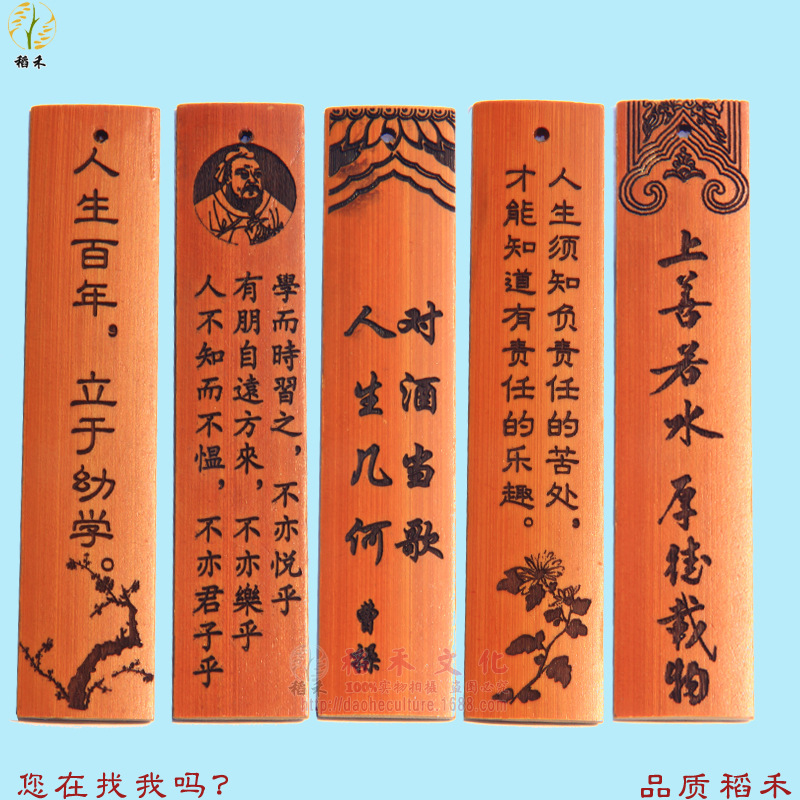 稻禾
人生百年，立于幼学。
學而時習之，不亦悦乎
有朋自遠方來，不亦樂乎
人不知而不愠，不亦君子乎
对酒当歌
人生几何
曹操
人生须知负责任的苦处，
才能知道有责任的乐趣。
上善若水 厚德载物
稻禾
稻禾文化
100%实物拍摄 盗图必究
http://daoheculture.1688.com
您在找我吗？
品质稻禾